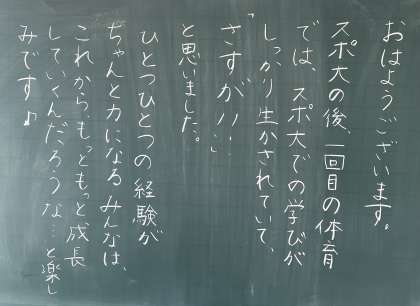 おはようございます。
スポ大の後、一回目の体育
では、スポ大での学びが
しっかり生かされていて、
「さすが!!」
と思いました。
ひとつひとつの経験が
ちゃんと力になるみんなは、
これから、もっともっと成長
していくんだろうな…と楽し
みです♪